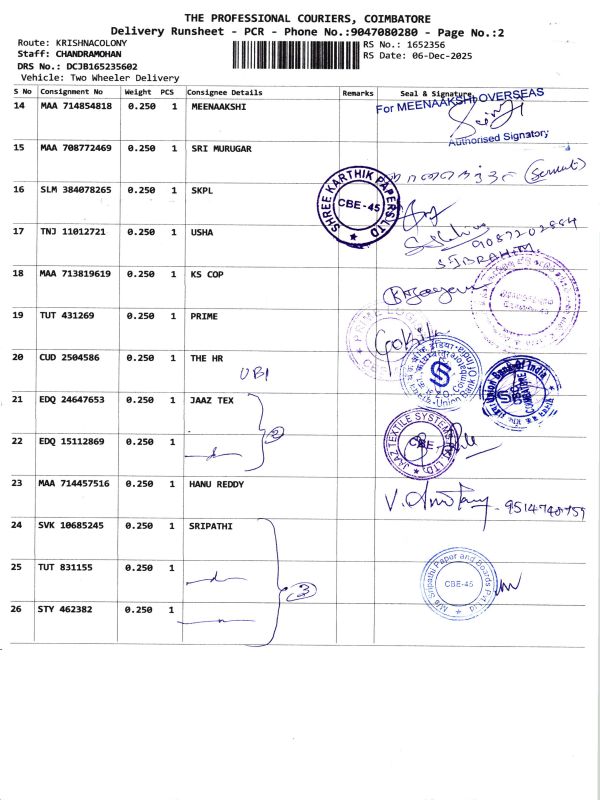 THE PROFESSIONAL COURIERS, COIMBATORE
Delivery Runsheet - PCR - Phone No.:9047080280 - Page No.:2
Route: KRISHNACOLONY
Staff: CHANDRAMOHAN
DRS No.: DCJB165235602
Vehicle: Two Wheeler Delivery
RS No.: 1652356
RS Date: 06-Dec-2025
S No Consignment No Weight PCS Consignee Details Remarks Seal & Signature
14 MAA 714854818 0.250 1 MEENAAKSHI
For MEENAAKSHI OVERSEAS
Authorised Signatory
15 MAA 708772469 0.250 1 SRI MURUGAR
16 SLM 384078265 0.250 1 SKPL
SHREE KARTHIK PAPERS LTD
CBE-45
17 TNJ 11012721 0.250 1 USHA
9087202884
S. IBRAHIM
18 MAA 713819619 0.250 1 KS COP
19 TUT 431269 0.250 1 PRIME
PRIME
Gokil
20 CUD 2504586 0.250 1 THE HR
UBI
Union Bank Of India
Union Bank Of India
21 EDQ 24647653 0.250 1 JAAZ TEX
2
22 EDQ 15112869 0.250 1
JAAZ TEXTILE SYSTEMS PVT LTD
CBE
23 MAA 714457516 0.250 1 HANU REDDY
9514748759
24 SVK 10685245 0.250 1 SRIPATHI
25 TUT 831155 0.250 1
3
M/s Sripathi Paper and Boards Pvt Ltd
CBE-45
26 STY 462382 0.250 1